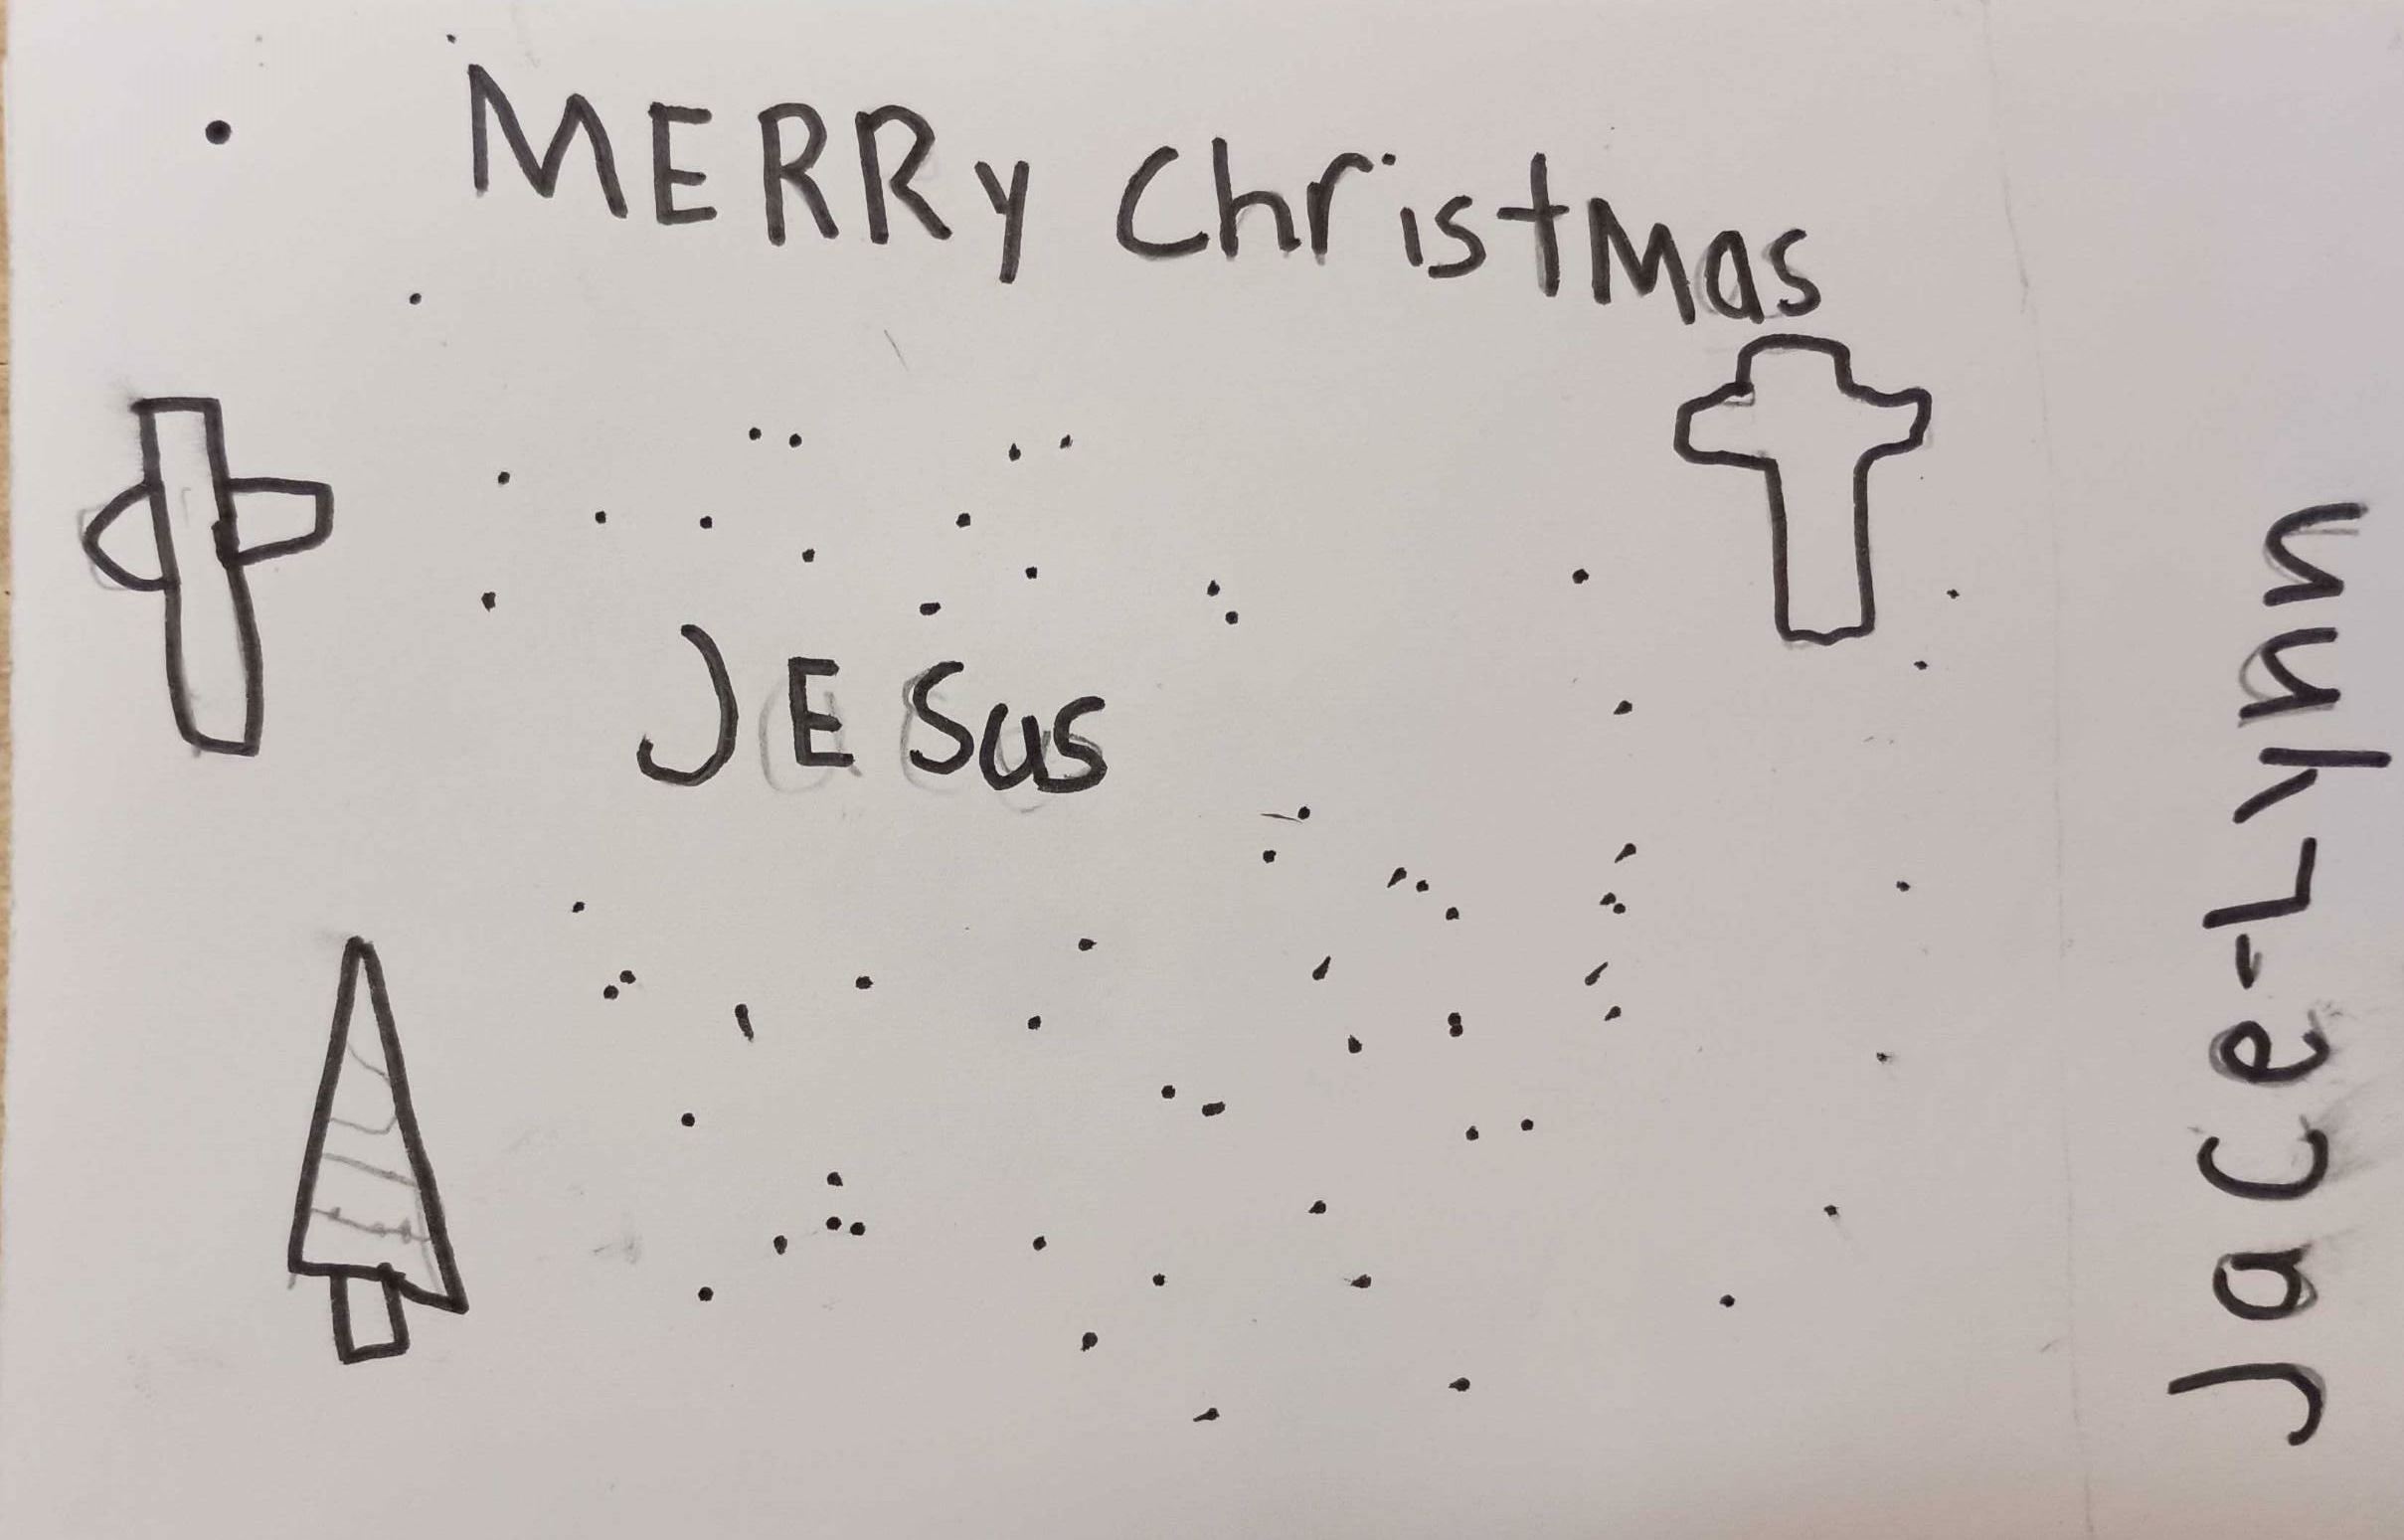 MERRy ChristMas
JESus
Jace-Lynn